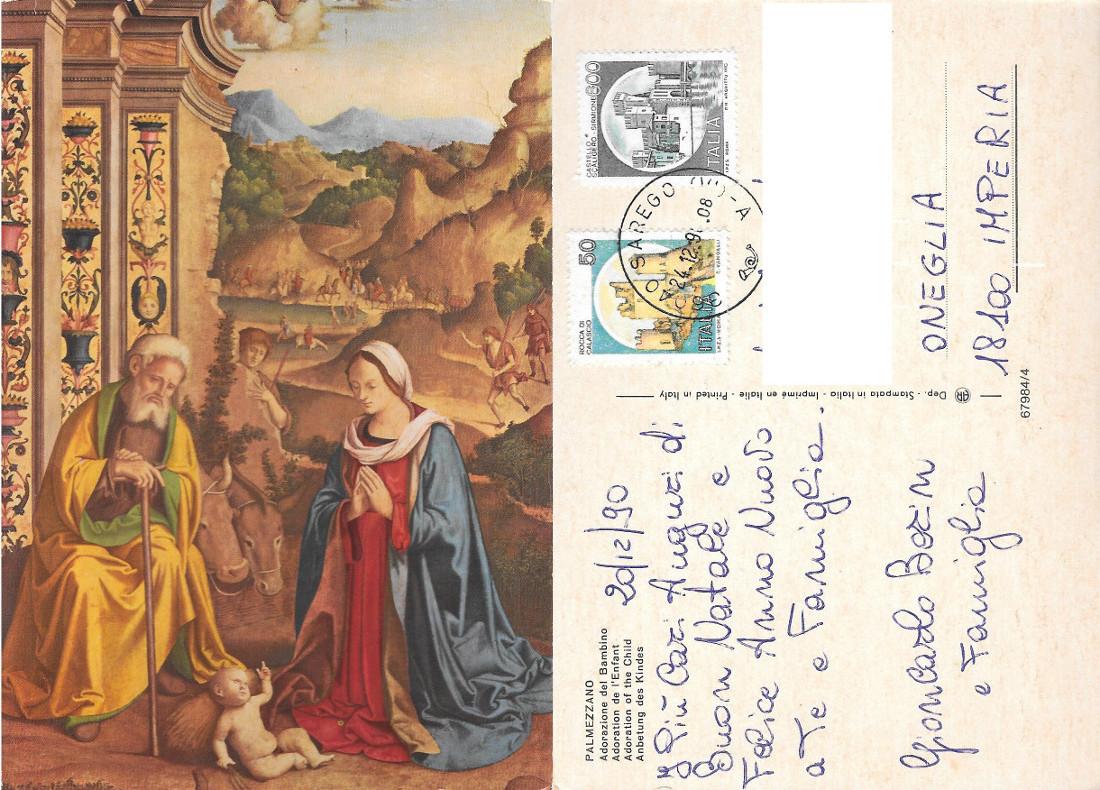 PALMEZZANO
Adorazione del Bambino
Adoration de l'Enfant
Adoration of the Child
Anbetung des Kindes
20/12/90
I Più Cari Auguri di
Buon Natale e
Felice Anno Nuovo
a Te e Famiglia.
Giancarlo
e Famiglia
Dep. - Stampata in Italia - Imprimé en Italie - Printed in Italy
AR
67984/4
CASTELLO
SCALIGERO - SIRMIONE
800
ITALIA
I.P.Z.S. ROMA
ROCCA DI
CALASCIO
50
ITALIA
I.P.Z.S. ROMA
SAREGO
24.12.9
.08
ONEGLIA
18100 IMPERIA